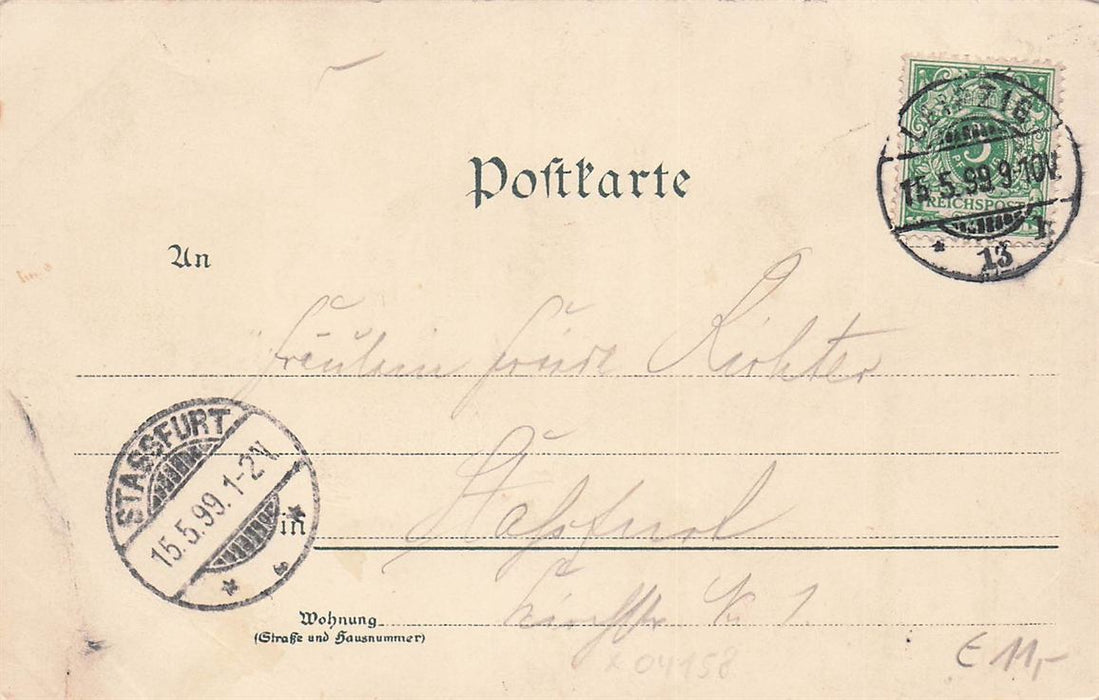 Postkarte
LEIPZIG
15.5.99 9-10V.
* 13 k
5
PF
REICHSPOST
An
Fräulein Friede Richter
STASSFURT
15.5.99. 1-2N.
in Staßfurt
Wohnung
(Straße und Hausnummer)
№ 1
x 04158
€ 11,-